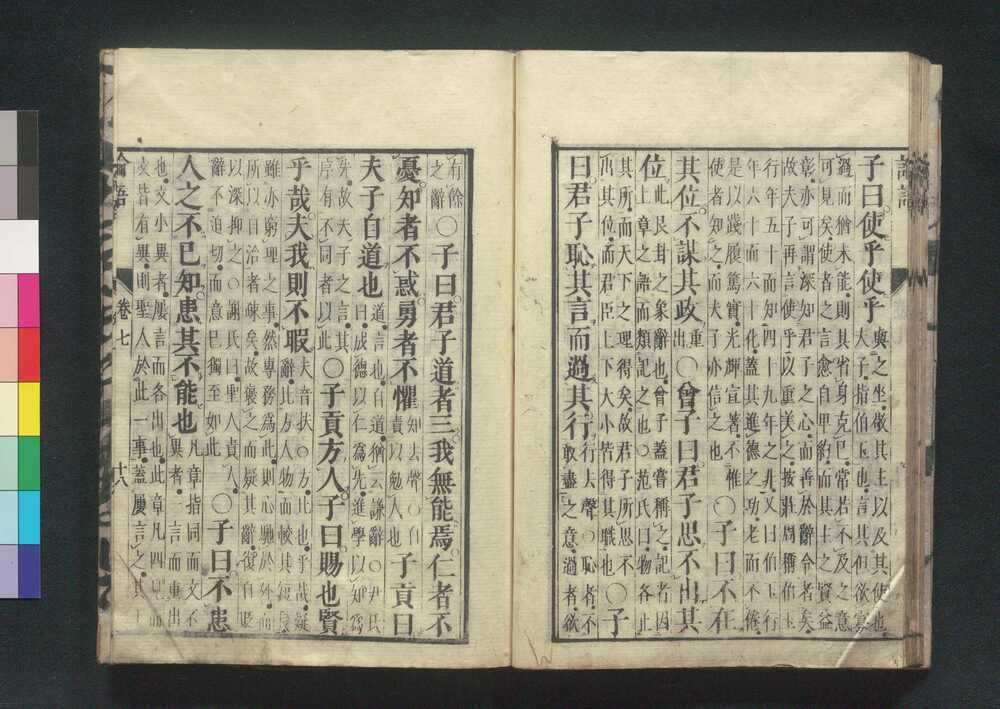 論語
子曰使乎使乎
與之坐敬其主以及其使也
夫子指伯玉也言其但欲寡
過而猶未能則其省身克己常若不及之意
可見矣使者之言愈自卑約而其主之賢益
彰亦可謂深知君子之心而善於辭令者矣
故夫子再言使乎以重美之按莊周稱伯玉
行年五十而知四十九年之非又曰伯玉行
年六十而六十化蓋其進德之功老而不倦
是以踐履篤實光輝宣著不惟
使者知之而夫子亦信之也
○子曰不在
其位不謀其政
重
出
○曾子曰君子思不出其
位
此艮卦之象辭也曾子蓋嘗稱之記者因
上章之語而類記之也○范氏曰物各止
其所而天下之理得矣故君子所思不
出其位而君臣上下大小皆得其職也
○子
曰君子恥其言而過其行
行去聲○恥者不
敢盡之意過者欲
有餘
之辭
○子曰君子道者三我無能焉仁者不
憂知者不惑勇者不懼
知去聲○自
責以勉人也
子貢曰
夫子自道也
道言也自道猶云謙辭○尹氏
曰成德以仁為先進學以知為
先故夫子之言其
序有不同者以此
○子貢方人子曰賜也賢
乎哉夫我則不暇
夫音扶○方比也乎哉疑
辭比方人物而較其短長
雖亦窮理之事然專務為此則心馳於外而
所以自治者疎矣故褒之而疑其辭復自貶
以深抑之○謝氏曰聖人責人
辭不迫切而意已獨至如此
○子曰不患
人之不己知患其不能也
凡章指同而文不
異者一言而重出
也文小異者屢言而各出也此章凡四見而
文皆有異則聖人於此一事蓋屢言之其丁
論語 卷七 十八